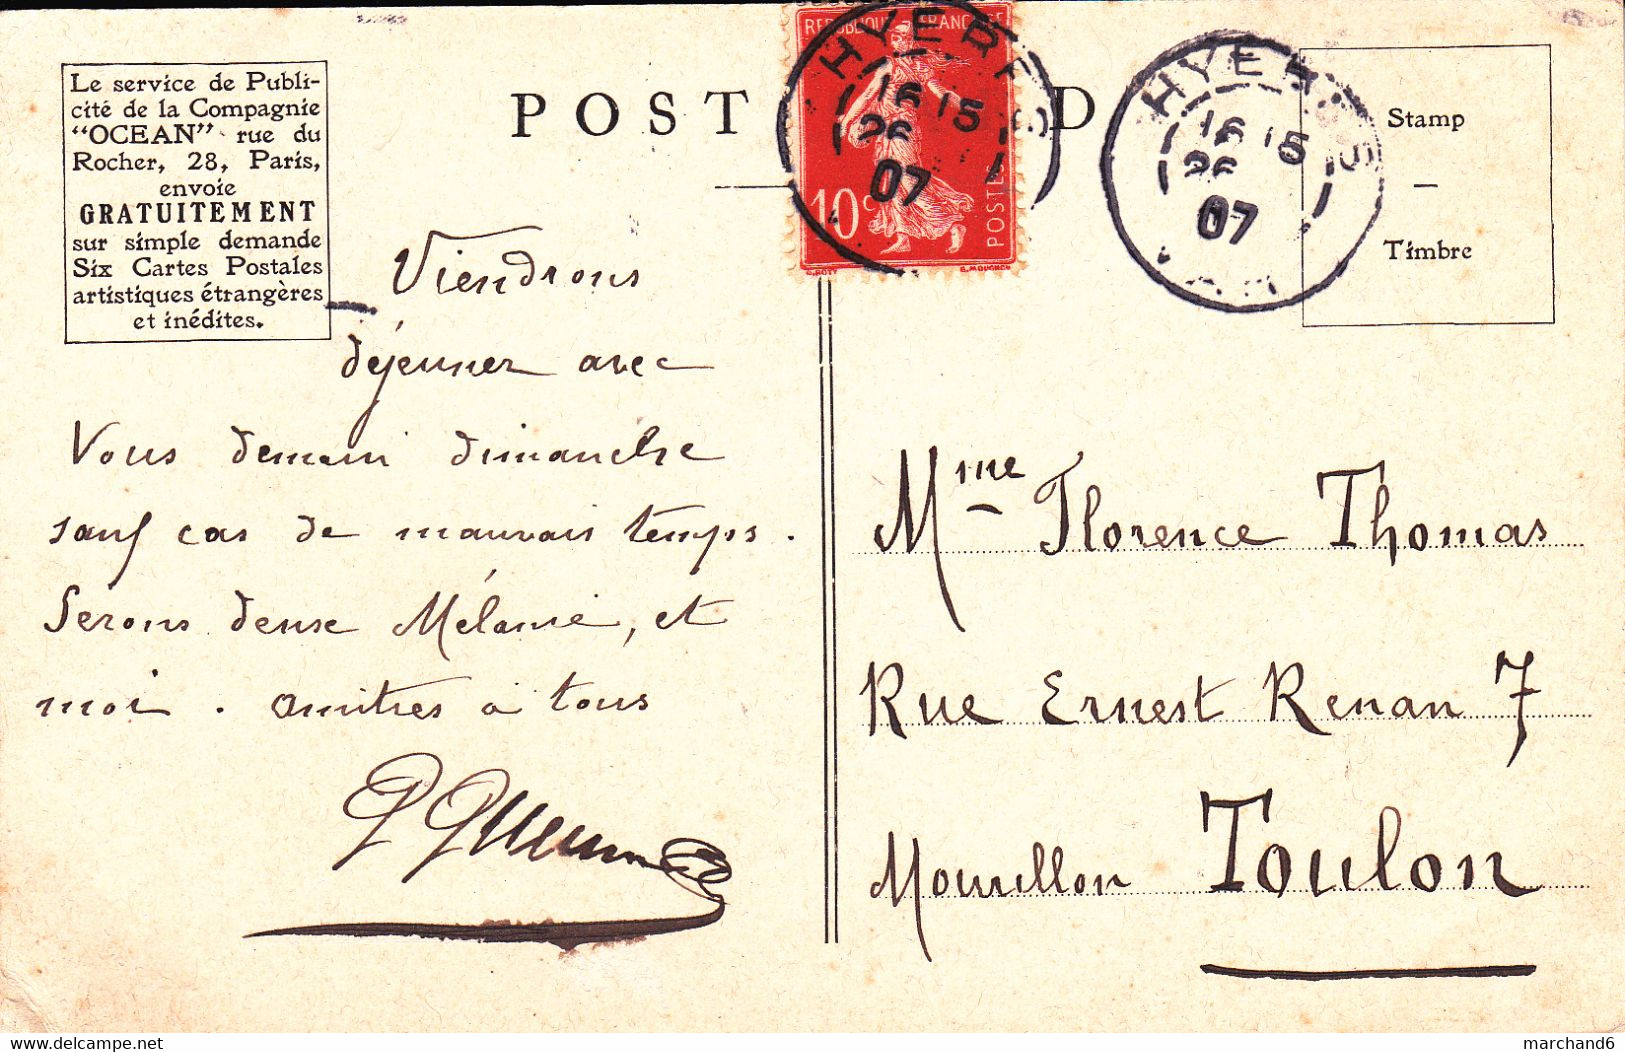 Le service de Publi-
cité de la Compagnie
"OCEAN" rue du
Rocher, 28, Paris,
envoie
GRATUITEMENT
sur simple demande
Six Cartes Postales
artistiques étrangères
et inédites.
POST D
REPUBLIQUE FRANCAISE
10 c
POSTES
O. ROTY
E. MOUCHON
HYERES
16 15
26
07
HYERES
16 15
26
07
Stamp
–
Timbre
Viendrons
déjeuner avec
Vous demain dimanche
sauf cas de mauvais temps.
Serons deux Mélanie, et
moi. amitiés à tous
Mme Florence Thomas
Rue Ernest Renan 7
Mourillon Toulon
marchand6